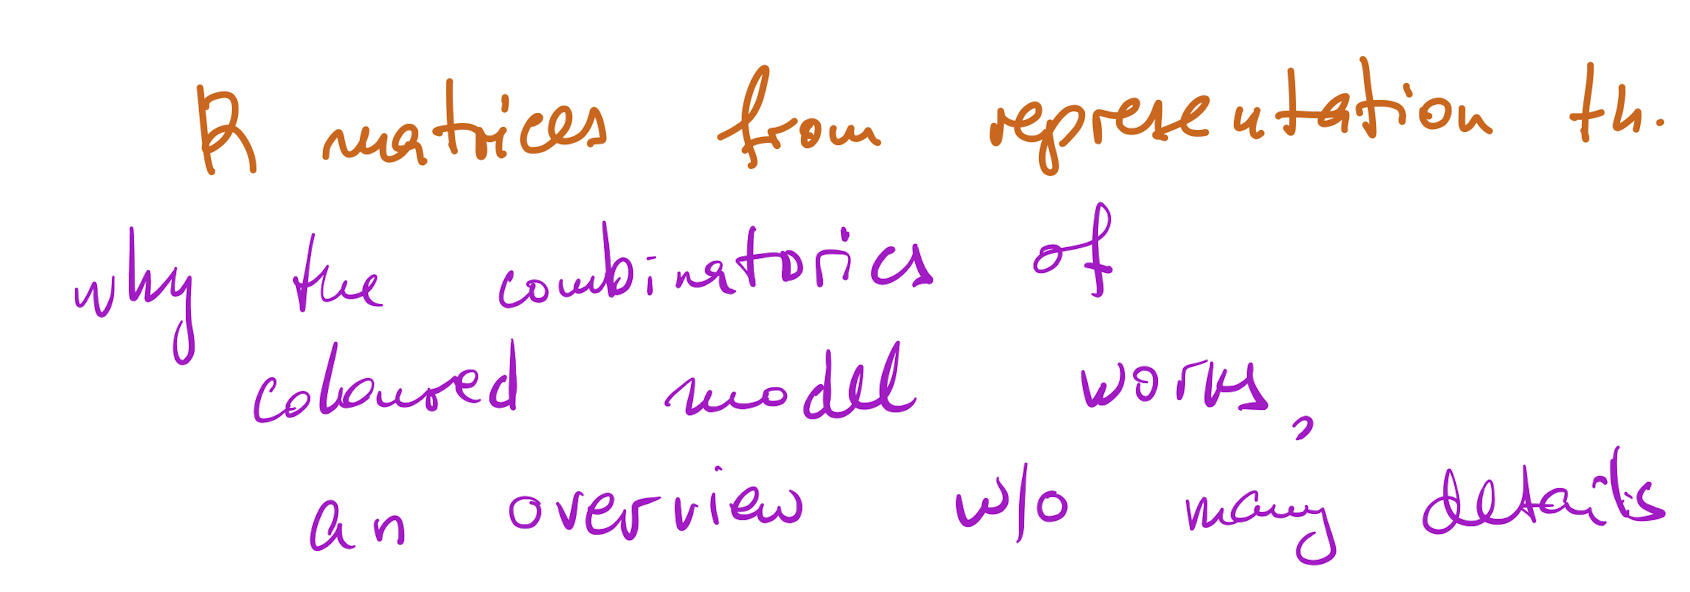 R matrices from representation th.
why the combinatorics of
coloured model works,
an overview w/o many details